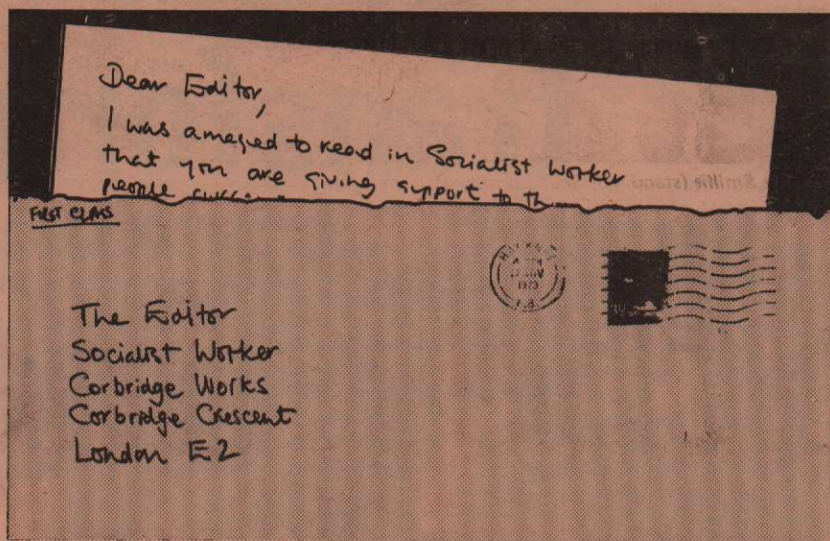 Dear Editor,
I was amazed to read in Socialist Worker
that you are giving support to th
people
FIRST CLASS
1973
The Editor
Socialist Worker
Corbridge Works
Corbridge Crescent
London E2